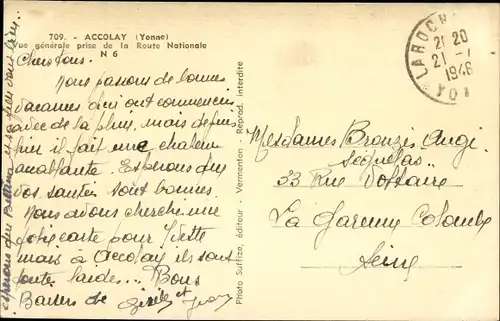 709. - ACCOLAY (Yonne)
Vue générale prise de la Route Nationale
N 6
Chers tous.
Nous passons de bonnes
vacances qui ont commencé
avec de la pluie, mais depuis
hier il fait une chaleur
Espérons que
vos santés sont bonnes.
Nous avons cherché une
jolie carte pour
mais à Accolay ils sont
toutes laides... Bons
Baisers de Gisèle et
espérons que
Photo Suffize, éditeur - Vermenton - Reprod. interdite
LAROCHE
21 20
21 -
1946
YON
Mesdames
33 Rue Voltaire
La Garenne Colombes
Seine